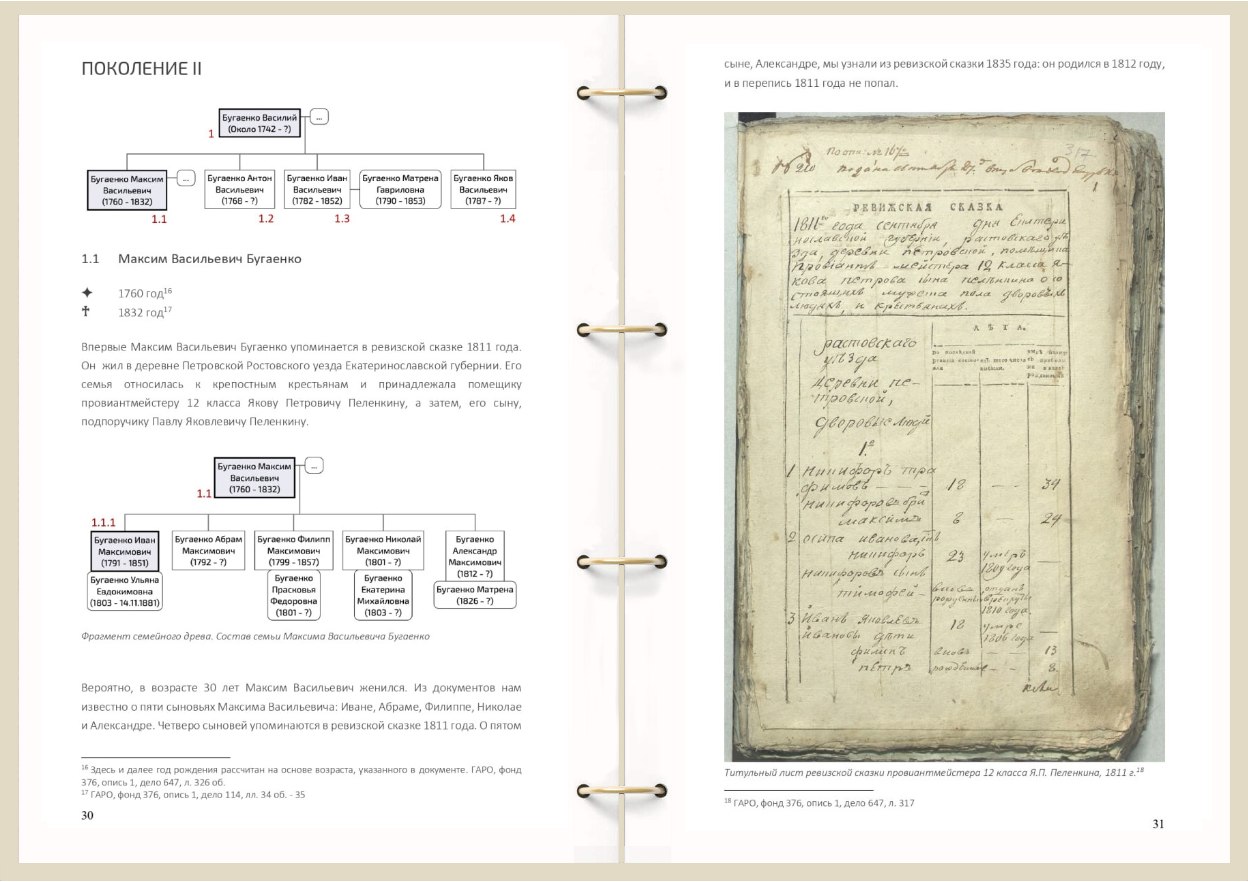 ПОКОЛЕНИЕ II
Бугаенко Василий
(Около 1742 - ?)
...
1
Бугаенко Максим
Васильевич
(1760 - 1832)
...
1.1
Бугаенко Антон
Васильевич
(1768 - ?)
1.2
Бугаенко Иван
Васильевич
(1782 - 1852)
1.3
Бугаенко Матрена
Гавриловна
(1790 - 1853)
Бугаенко Яков
Васильевич
(1787 - ?)
1.4
1.1 Максим Васильевич Бугаенко
1760 год16
1832 год17
Впервые Максим Васильевич Бугаенко упоминается в ревизской сказке 1811 года.
Он жил в деревне Петровской Ростовского уезда Екатеринославской губернии. Его
семья относилась к крепостным крестьянам и принадлежала помещику
провиантмейстеру 12 класса Якову Петровичу Пеленкину, а затем, его сыну,
подпоручику Павлу Яковлевичу Пеленкину.
Бугаенко Максим
Васильевич
(1760 - 1832)
...
1.1
1.1.1
Бугаенко Иван
Максимович
(1791 - 1851)
Бугаенко Ульяна
Евдокимовна
(1803 - 14.11.1881)
Бугаенко Абрам
Максимович
(1792 - ?)
Бугаенко Филипп
Максимович
(1799 - 1857)
Бугаенко
Прасковья
Федоровна
(1801 - ?)
Бугаенко Николай
Максимович
(1801 - ?)
Бугаенко
Екатерина
Михайловна
(1803 - ?)
Бугаенко
Александр
Максимович
(1812 - ?)
Бугаенко Матрена
(1826 - ?)
Фрагмент семейного древа. Состав семьи Максима Васильевича Бугаенко
Вероятно, в возрасте 30 лет Максим Васильевич женился. Из документов нам
известно о пяти сыновьях Максима Васильевича: Иване, Абраме, Филиппе, Николае
и Александре. Четверо сыновей упоминаются в ревизской сказке 1811 года. О пятом
16 Здесь и далее год рождения рассчитан на основе возраста, указанного в документе. ГАРО, фонд
376, опись 1, дело 647, л. 326 об.
17 ГАРО, фонд 376, опись 1, дело 114, лл. 34 об. - 35
30
сыне, Александре, мы узнали из ревизской сказки 1835 года: он родился в 1812 году,
и в перепись 1811 года не попал.
317
РЕВИЖСКАЯ СКАЗКА
1811 года сентября дня Екатери
нославской губернiи, растовскаго
деревни петровской,
12 класса я
кова петрова сына
мужеска пола дворовыхъ
людяхъ, и крестьянахъ.
ЛѢТА.
растовскаго
уѣзда
деревни пе-
тровской,
дворовыхъ людей
1
18 — — 34
максимъ 8 — 24
2 осипъ
23 умеръ
1809 года
тимофей
1810 года
3 Иванъ 18 умре
дѣти 1806 года
филипъ вновь — — 13
петръ — — 8
Титульный лист ревизской сказки провиантмейстера 12 класса Я.П. Пеленкина, 1811 г.18
18 ГАРО, фонд 376, опись 1, дело 647, л. 317
31